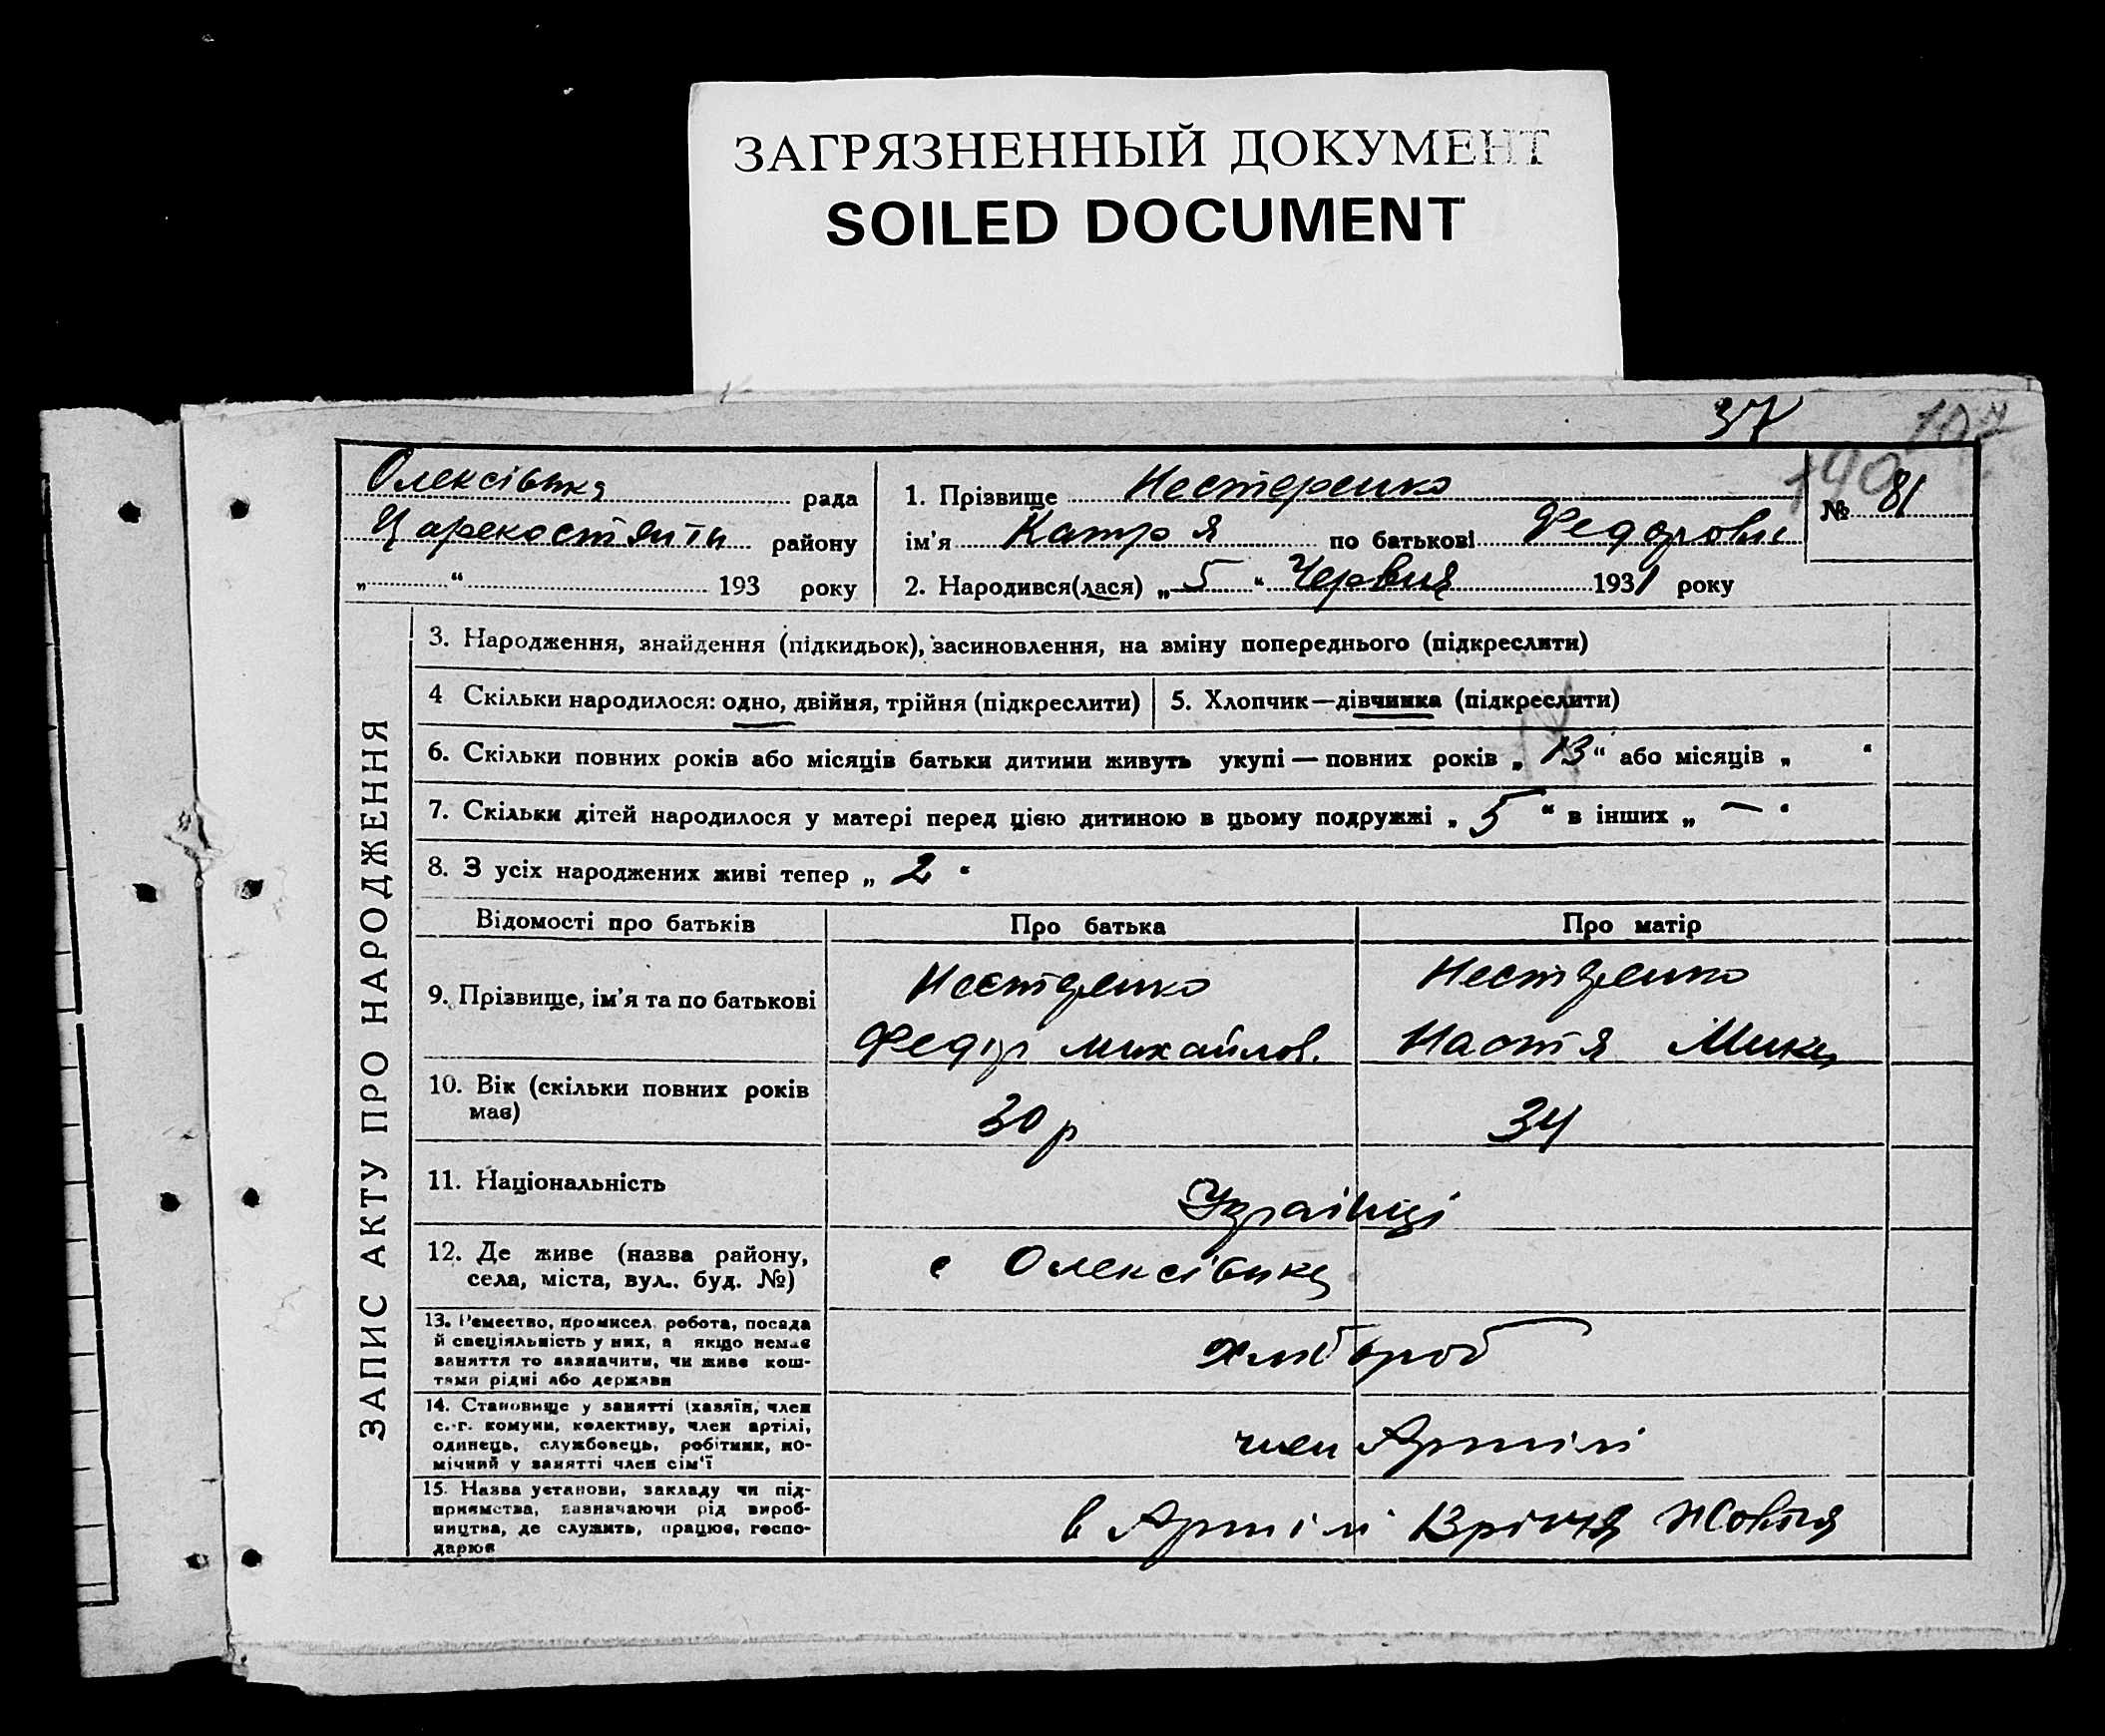 ЗАГРЯЗНЕННЫЙ ДОКУМЕНТ
SOILED DOCUMENT
37
107
190
Олексівська рада
району
„ “ 193 року
1. Прізвище Нестеренко
ім'я Катря по батькові Федоровн
2. Народився(лася) „5“ Червня 1931 року
№ 81
ЗАПИС АКТУ ПРО НАРОДЖЕННЯ
3. Народження, знайдення (підкидьок), засиновлення, на зміну попереднього (підкреслити)
4 Скільки народилося: одно, двійня, трійня (підкреслити)
5. Хлопчик—дівчинка (підкреслити)
6. Скільки повних років або місяців батьки дитини живуть укупі — повних років „13“ або місяців „ “
7. Скільки дітей народилося у матері перед цією дитиною в цьому подружжі „5“ в інших „—“
8. З усіх народжених живі тепер „2“
Відомості про батьків Про батька Про матір
9. Прізвище, ім'я та по батькові
Нестеренко
Федір Михайлов.
Нестеренко
Настя Мики
10. Вік (скільки повних років
має)
30 р
34
11. Національність
Українці
12. Де живе (назва району,
села, міста, вул., буд. №)
с Олексівка
13. Ремество, промисел, робота, посада
й спеціяльність у них, а якщо немає
заняття то зазначити, чи живе кош-
тами рідні або держави
хлібороб
14. Становище у занятті (хазяїн, член
с.-г. комуни, колективу, член артілі,
одинець, службовець, робітник, по-
мічний у занятті член сім'ї
член Артілі
15. Назва установи, закладу чи під-
приємства, зазначаючи рід вироб-
ництва, де служить, працює, госпо-
дарює
в Артілі 13річчя Жовтня